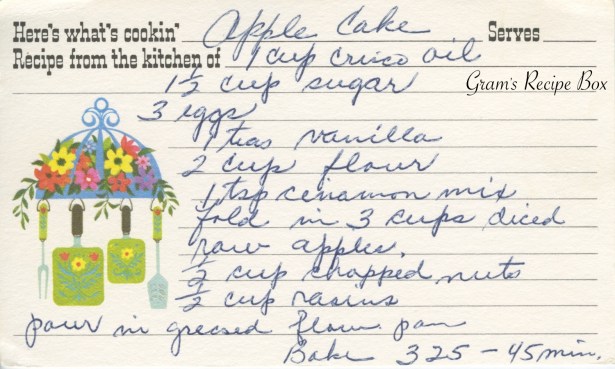 Here's what's cookin' Apple Cake Serves
Recipe from the kitchen of 1 cup crisco oil
Gram's Recipe Box
1 1/2 cup sugar
3 eggs
1 teas vanilla
2 cup flour
1 tsp cinamon mix
fold in 3 cups diced
raw apples.
1/2 cup chopped nuts
1/2 cup rasins
pour in greased flour pan
Bake 325 - 45 min.